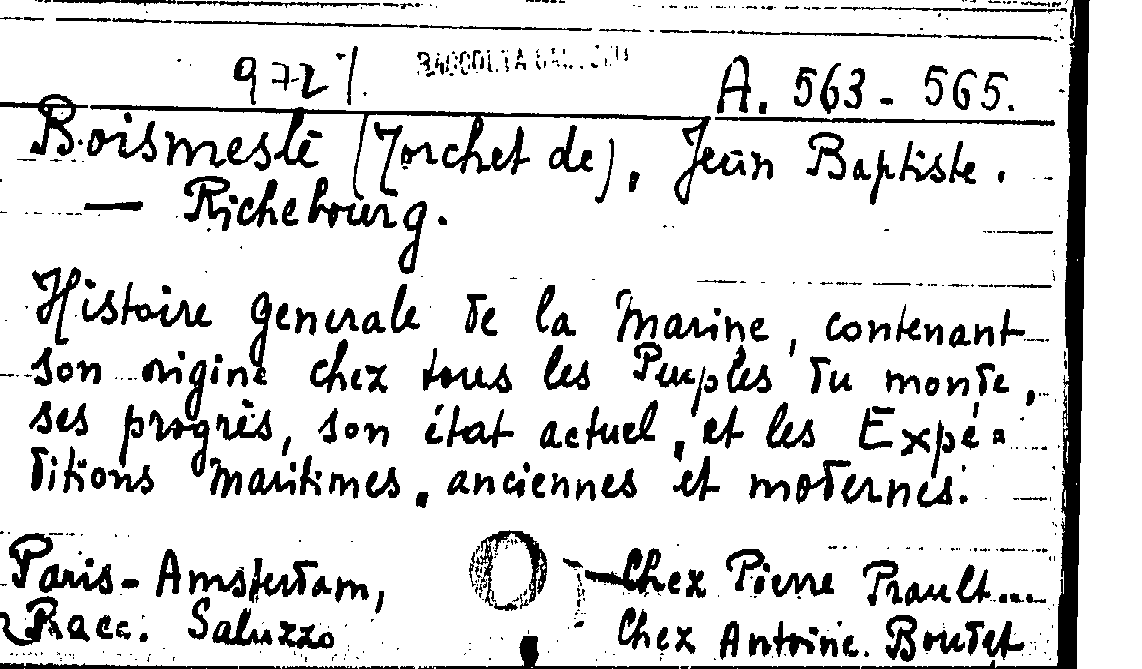 972 /. RACCOLTA SALUZZO A. 563 - 565.
Boismeslé (Torchet de), Jean Baptiste.
— Richebourg.
Histoire generale de la Marine, contenant
son origine chez tous les Peuples du monde,
ses progrès, son état actuel, et les Expé=
ditions maritimes, anciennes et modernes.
Paris - Amsterdam, — Chez Pierre Prault...
Racc. Saluzzo Chez Antoine. Boudet